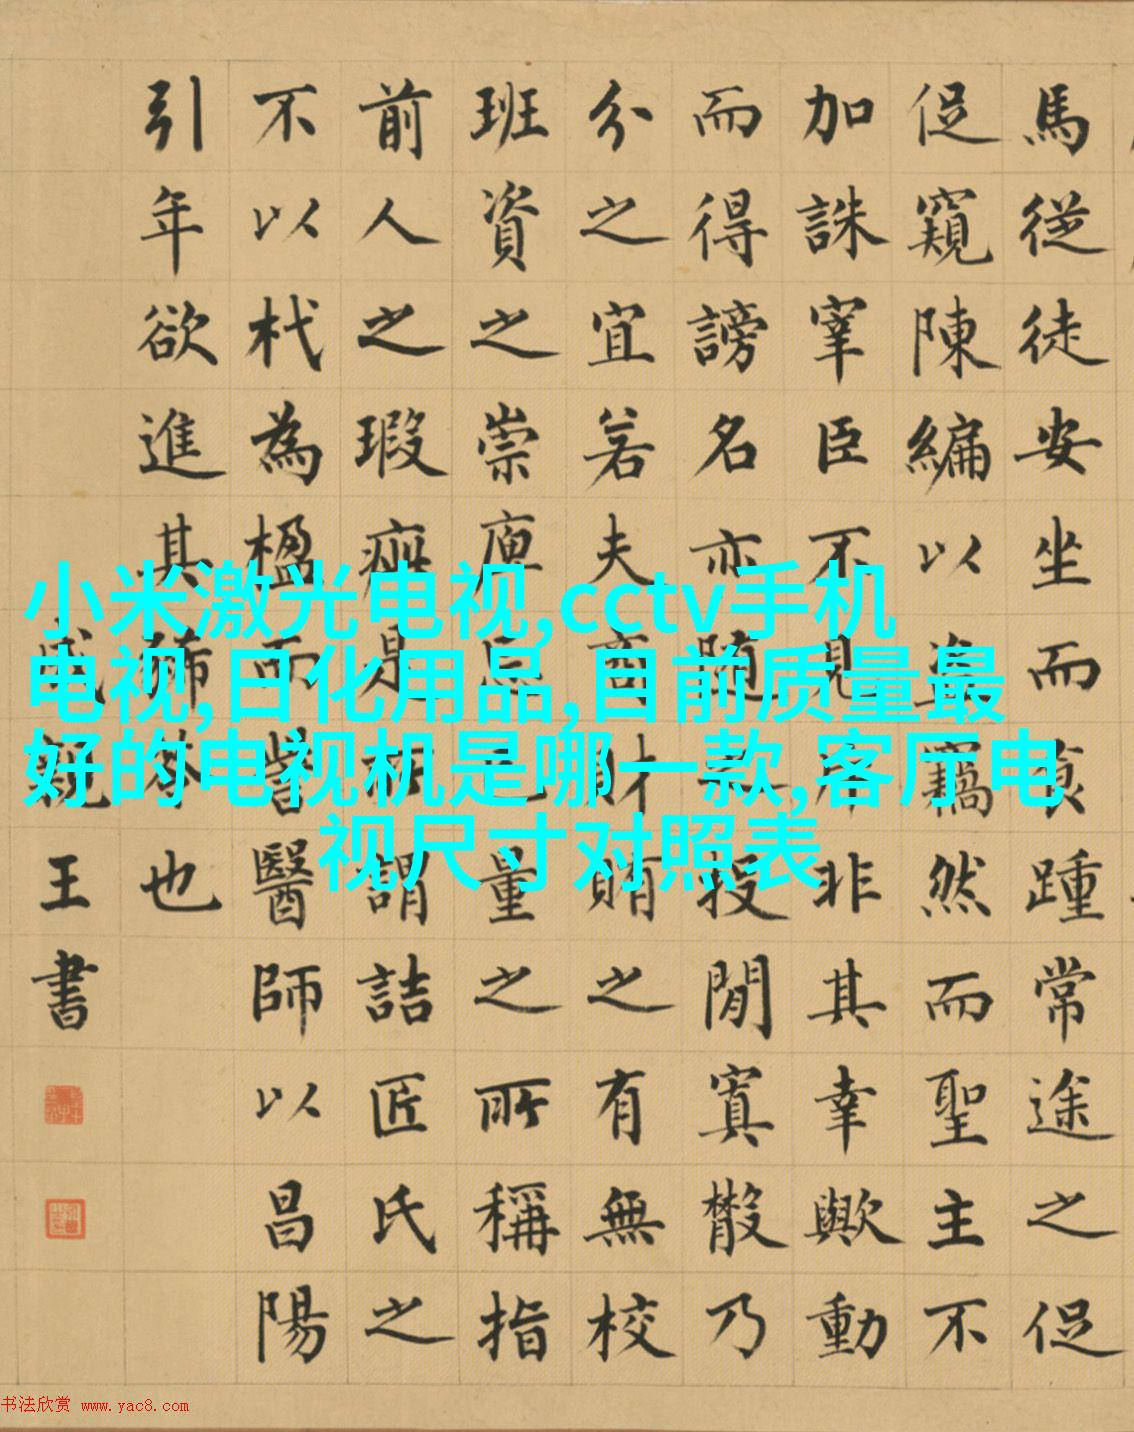 馬從徒安坐而食踵常途之促
促窺陳編以盜竊然而聖主不
加誅宰臣不見斥非其幸歟動
而得謗名亦隨之投閒寘散乃
分之宜若夫商財賄之有無校
班資之崇庳忘己量之所稱指
前人之瑕疵是所謂詰匠氏之
不以杙為楹而訾醫師以昌陽
引年欲進其豨苓也
成親王書
小米激光电视,cctv手机
电视,日化用品,目前质量最
好的电视机是哪一款,客厅电
视尺寸对照表
书法欣赏 www.yac8.com